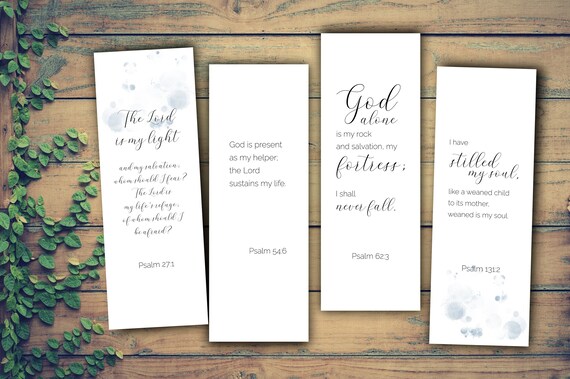 The Lord
is my light
and my salvation;
whom should I fear?
The Lord is
my life's refuge;
of whom should I
be afraid?
Psalm 27:1
God is present
as my helper;
the Lord
sustains my life.
Psalm 54:6
God
alone
is my rock
and salvation, my
fortress;
I shall
never fall.
Psalm 62:3
I have
stilled
my soul,
like a weaned child
to its mother,
weaned is my soul.
Psalm 131:2